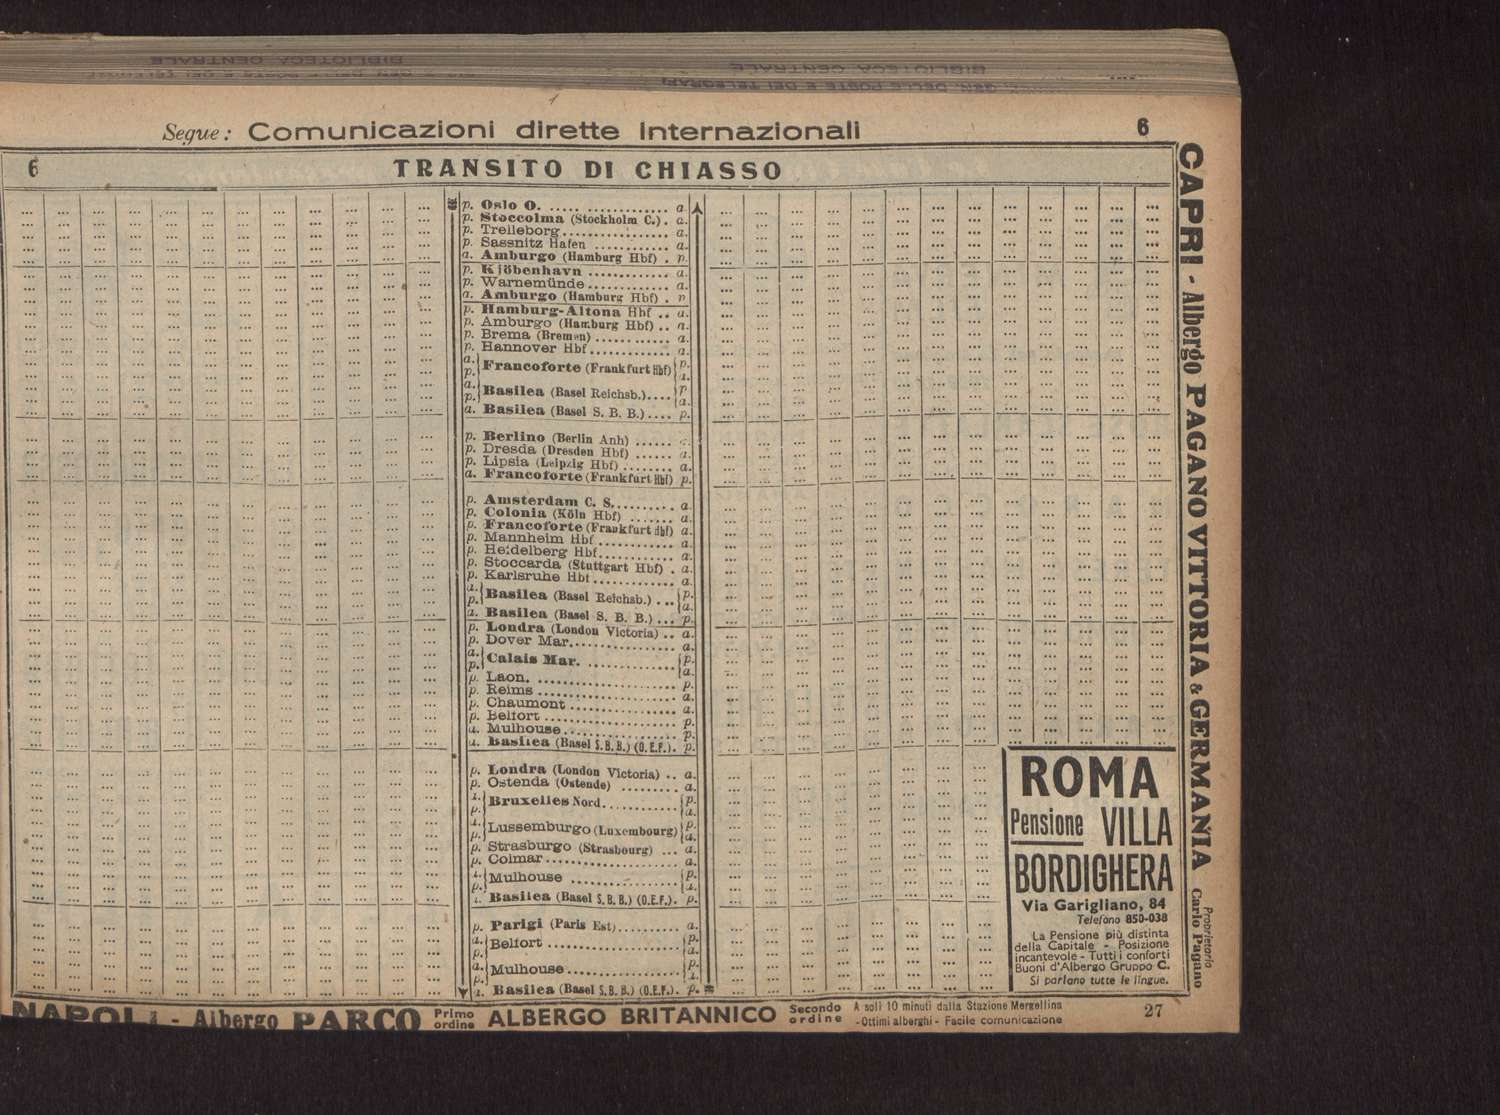 BIBLIOTECA CENTRALE
BIBLIOTECA CENTRALE
Segue: Comunicazioni dirette internazionali 6
6 TRANSITO DI CHIASSO
p. Oslo O. ... a.
p. Stoccolma (Stockholm C.). a.
p. Trelleborg ... a.
p. Sassnitz Hafen ... a.
a. Amburgo (Hamburg Hbf) . p.
p. Kjöbenhavn ... a.
p. Warnemünde ... a.
a. Amburgo (Hamburg Hbf) . p
p. Hamburg-Altona Hbf .. a.
p. Amburgo (Hamburg Hbf) .. a.
p. Brema (Bremen) ... a.
p. Hannover Hbf ... a.
a. p. Francoforte (Frankfurt Hbf) p. a.
a. p. Basilea (Basel Reichsb.) .... p a.
a. Basilea (Basel S. B. B.) .... p.
p. Berlino (Berlin Anh) ......
p. Dresda (Dresden Hbf) ...... a.
p. Lipsia (Leipzig Hbf) ........ a.
a. Francoforte (Frankfurt Hbf) p.
p. Amsterdam C. S. ......... a.
p. Colonia (Köln Hbf) ....... a.
p. Francoforte (Frankfurt Hbf) a.
p. Mannheim Hbf ... a.
p. Heidelberg Hbf ... a.
p. Stoccarda (Stuttgart Hbf) . a.
p. Karlsruhe Hbf ... a.
a. p. Basilea (Basel Reichsb.) ... p. a.
a. Basilea (Basel S. B. B.) ... p.
p. Londra (London Victoria) .. a.
p. Dover Mar. ... a.
a. p. Calais Mar. ... p. a.
p. Laon. ... p.
p. Reims ... a.
p. Chaumont ... a.
p. Belfort ... p.
a. Mulhouse ... p.
a. Basilea (Basel S.B.B.) (O.E.F.). p.
p. Londra (London Victoria) .. a.
p. Ostenda (Ostende) ........ a.
p. Bruxelles Nord. ... p. a.
p. Lussemburgo (Luxembourg) p. a.
p. Strasburgo (Strasbourg) ... a.
p. Colmar ... a.
p. Mulhouse ... p. a.
Basilea (Basel S.B.B.) (O.E.F.). p.
p. Parigi (Paris Est) ......... a.
a. p. Belfort ... p. a.
a. p. Mulhouse ... p.
a. Basilea (Basel S.B.B.) (O.E.F.). p.
CAPRI - Albergo PAGANO VITTORIA & GERMANIA
Proprietario
Carlo Pagano
ROMA
Pensione VILLA
BORDIGHERA
Via Garigliano, 84
Telefono 850-038
La Pensione più distinta
della Capitale - Posizione
incantevole - Tutti i conforti
Buoni d'Albergo Gruppo C.
Si parlano tutte le lingue.
NAPOLI - Albergo PARCO Primo ordine ALBERGO BRITANNICO Secondo ordine
A soli 10 minuti dalla Stazione Mergellina
- Ottimi alberghi - Facile comunicazione
27